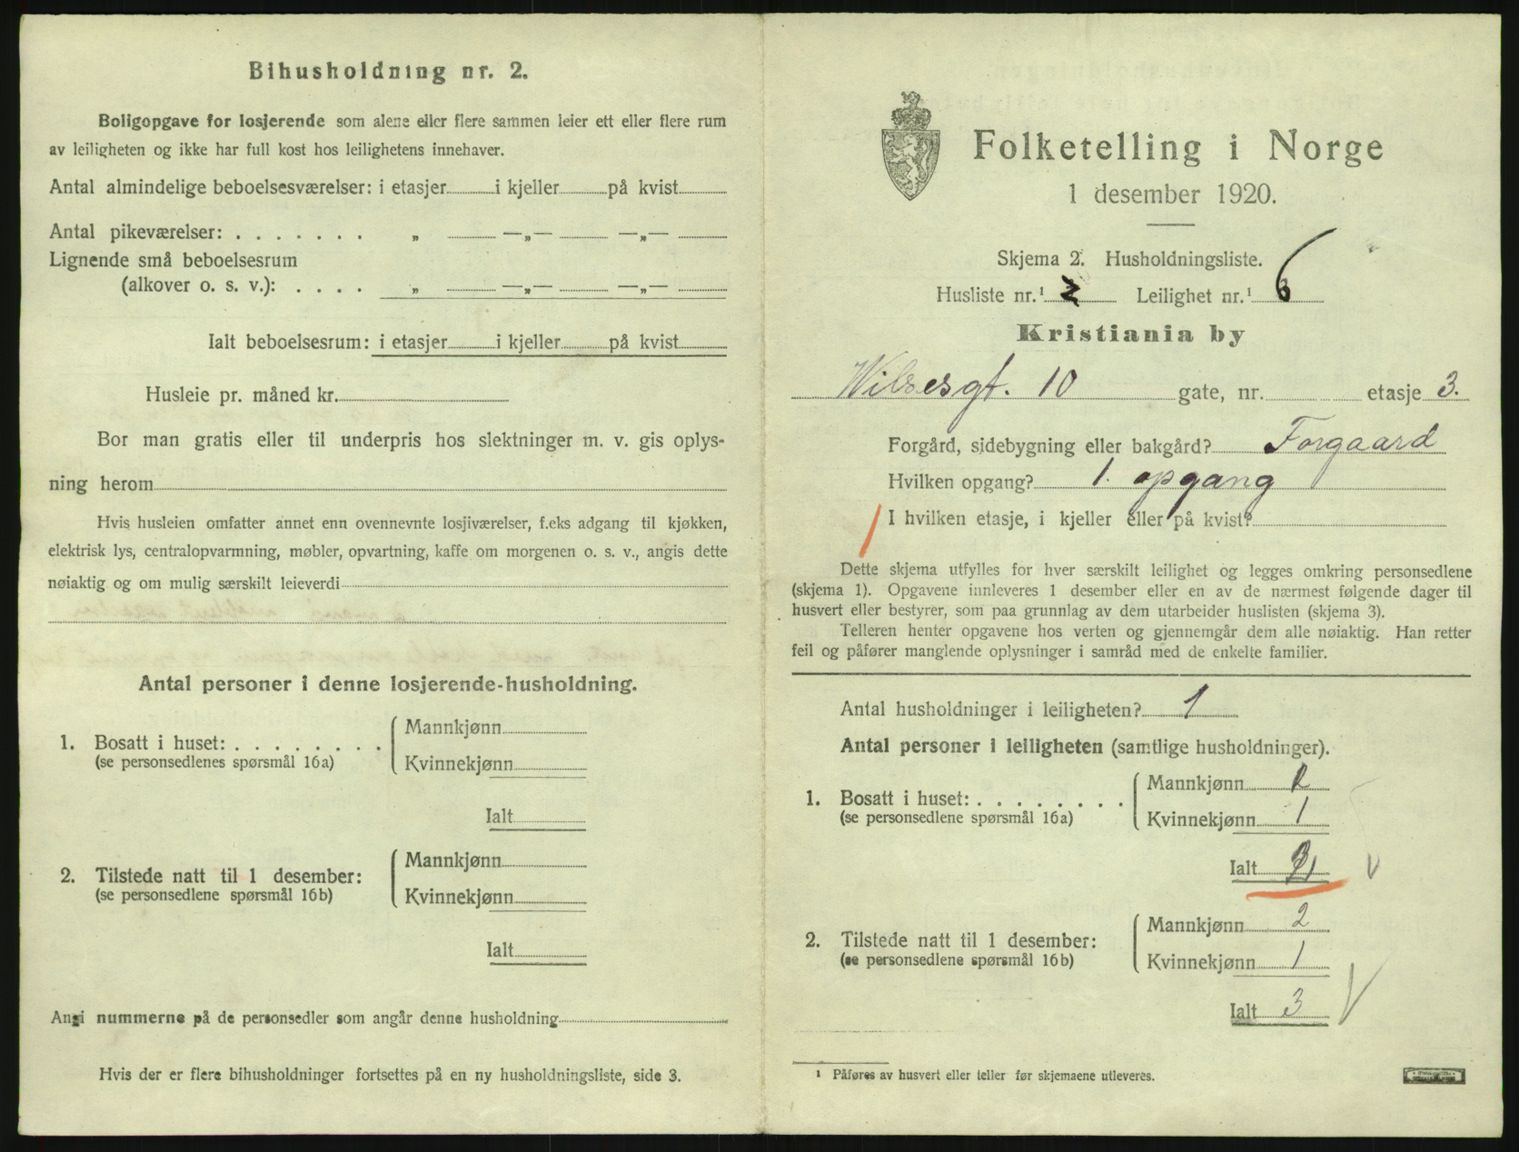 Bihusholdning nr. 2.
Boligopgave for losjerende som alene eller flere sammen leier ett eller flere rum
av leiligheten og ikke har full kost hos leilighetens innehaver.
Antal almindelige beboelsesværelser: i etasjer i kjeller på kvist
Antal pikeværelser: . . . . . . . „ —„— —„—
Lignende små beboelsesrum
(alkover o. s. v.): . . . . „ —„— —„—
Ialt beboelsesrum: i etasjer i kjeller på kvist
Husleie pr. måned kr.
Bor man gratis eller til underpris hos slektninger m. v. gis oplys-
ning herom
Hvis husleien omfatter annet enn ovennevnte losjiværelser, f.eks adgang til kjøkken,
elektrisk lys, centralopvarmning, møbler, opvartning, kaffe om morgenen o. s. v., angis dette
nøiaktig og om mulig særskilt leieverdi
Antal personer i denne losjerende-husholdning.
1. Bosatt i huset: . . . . . . . . Mannkjønn
(se personsedlenes spørsmål 16a) Kvinnekjønn
Ialt
2. Tilstede natt til 1 desember: Mannkjønn
(se personsedlene spørsmål 16b) Kvinnekjønn
Ialt
Angi nummerne på de personsedler som angår denne husholdning
Hvis der er flere bihusholdninger fortsettes på en ny husholdningsliste, side 3.
Folketelling i Norge
1 desember 1920.
Skjema 2. Husholdningsliste.
Husliste nr.¹ 2 Leilighet nr.¹ 6
Kristiania by
Wilsesgt. 10 gate, nr. etasje 3.
Forgård, sidebygning eller bakgård? Forgaard
Hvilken opgang? 1. opgang
I hvilken etasje, i kjeller eller på kvist?
Dette skjema utfylles for hver særskilt leilighet og legges omkring personsedlene
(skjema 1). Opgavene innleveres 1 desember eller en av de nærmest følgende dager til
husvert eller bestyrer, som paa grunnlag av dem utarbeider huslisten (skjema 3).
Telleren henter opgavene hos verten og gjennemgår dem alle nøiaktig. Han retter
feil og påfører manglende oplysninger i samråd med de enkelte familier.
Antal husholdninger i leiligheten? 1
Antal personer i leiligheten (samtlige husholdninger).
1. Bosatt i huset: . . . . . . . . Mannkjønn 2
(se personsedlene spørsmål 16a) Kvinnekjønn 1
Ialt
2. Tilstede natt til 1 desember: Mannkjønn 2
(se personsedlene spørsmål 16b) Kvinnekjønn 1
Ialt 3
¹ Påføres av husvert eller teller før skjemaene utleveres.